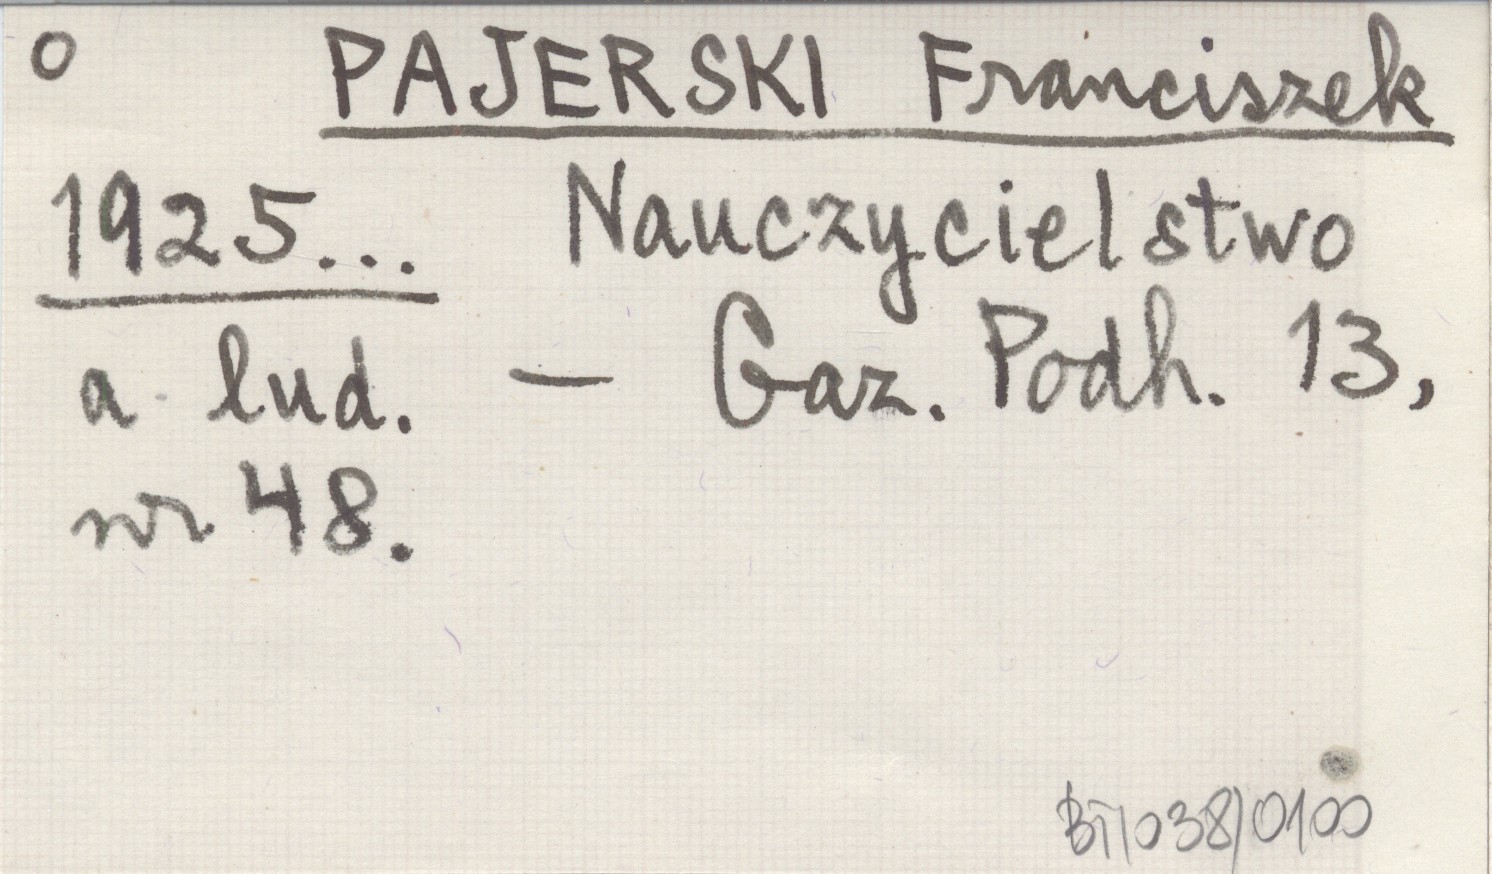 o PAJERSKI Franciszek
1925... Nauczycielstwo
a lud. — Gaz. Podh. 13,
nr 48.
BT/038/0100